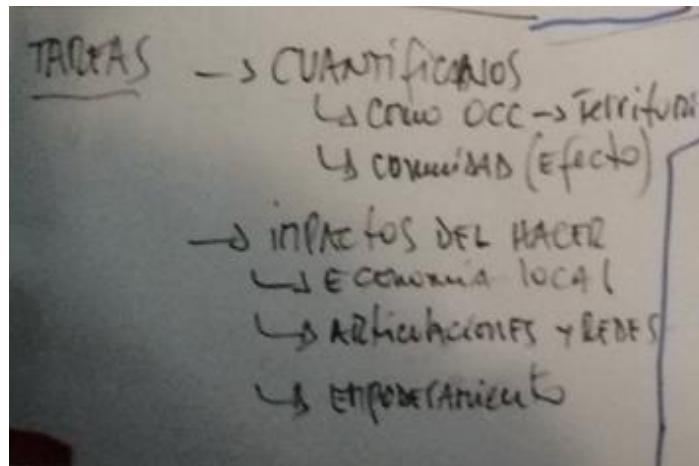 TAREAS → CUANTIFICARNOS
↳ COMO OCC → Territori
↳ COMUNIDAD (Efecto)
→ IMPACTOS DEL HACER
↳ ECONOMIA LOCAL
↳ ARTICULACIONES Y REDES
↳ EMPODERAMIENTO